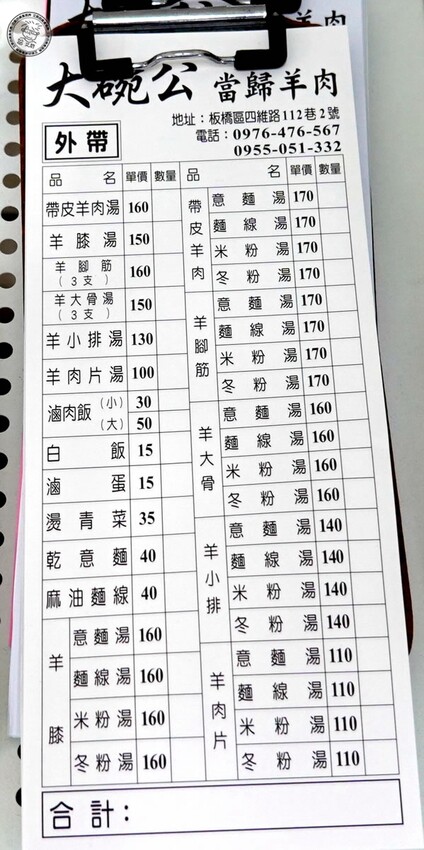 大碗公 當歸羊肉
地址：板橋區四維路112巷2號
外帶
電話：0976-476-567
0955-051-332
品 名 單價 數量
帶皮羊肉湯 160
羊膝湯 150
羊腳筋（3支） 160
羊大骨湯（3支） 150
羊小排湯 130
羊肉片湯 100
滷肉飯（小） 30
（大） 50
白飯 15
滷蛋 15
燙青菜 35
乾意麵 40
麻油麵線 40
羊膝
意麵湯 160
麵線湯 160
米粉湯 160
冬粉湯 160
品 名 單價 數量
帶皮羊肉
意麵湯 170
麵線湯 170
米粉湯 170
冬粉湯 170
羊腳筋
意麵湯 170
麵線湯 170
米粉湯 170
冬粉湯 170
羊大骨
意麵湯 160
麵線湯 160
米粉湯 160
冬粉湯 160
羊小排
意麵湯 140
麵線湯 140
米粉湯 140
冬粉湯 140
羊肉片
意麵湯 110
麵線湯 110
米粉湯 110
冬粉湯 110
合計：